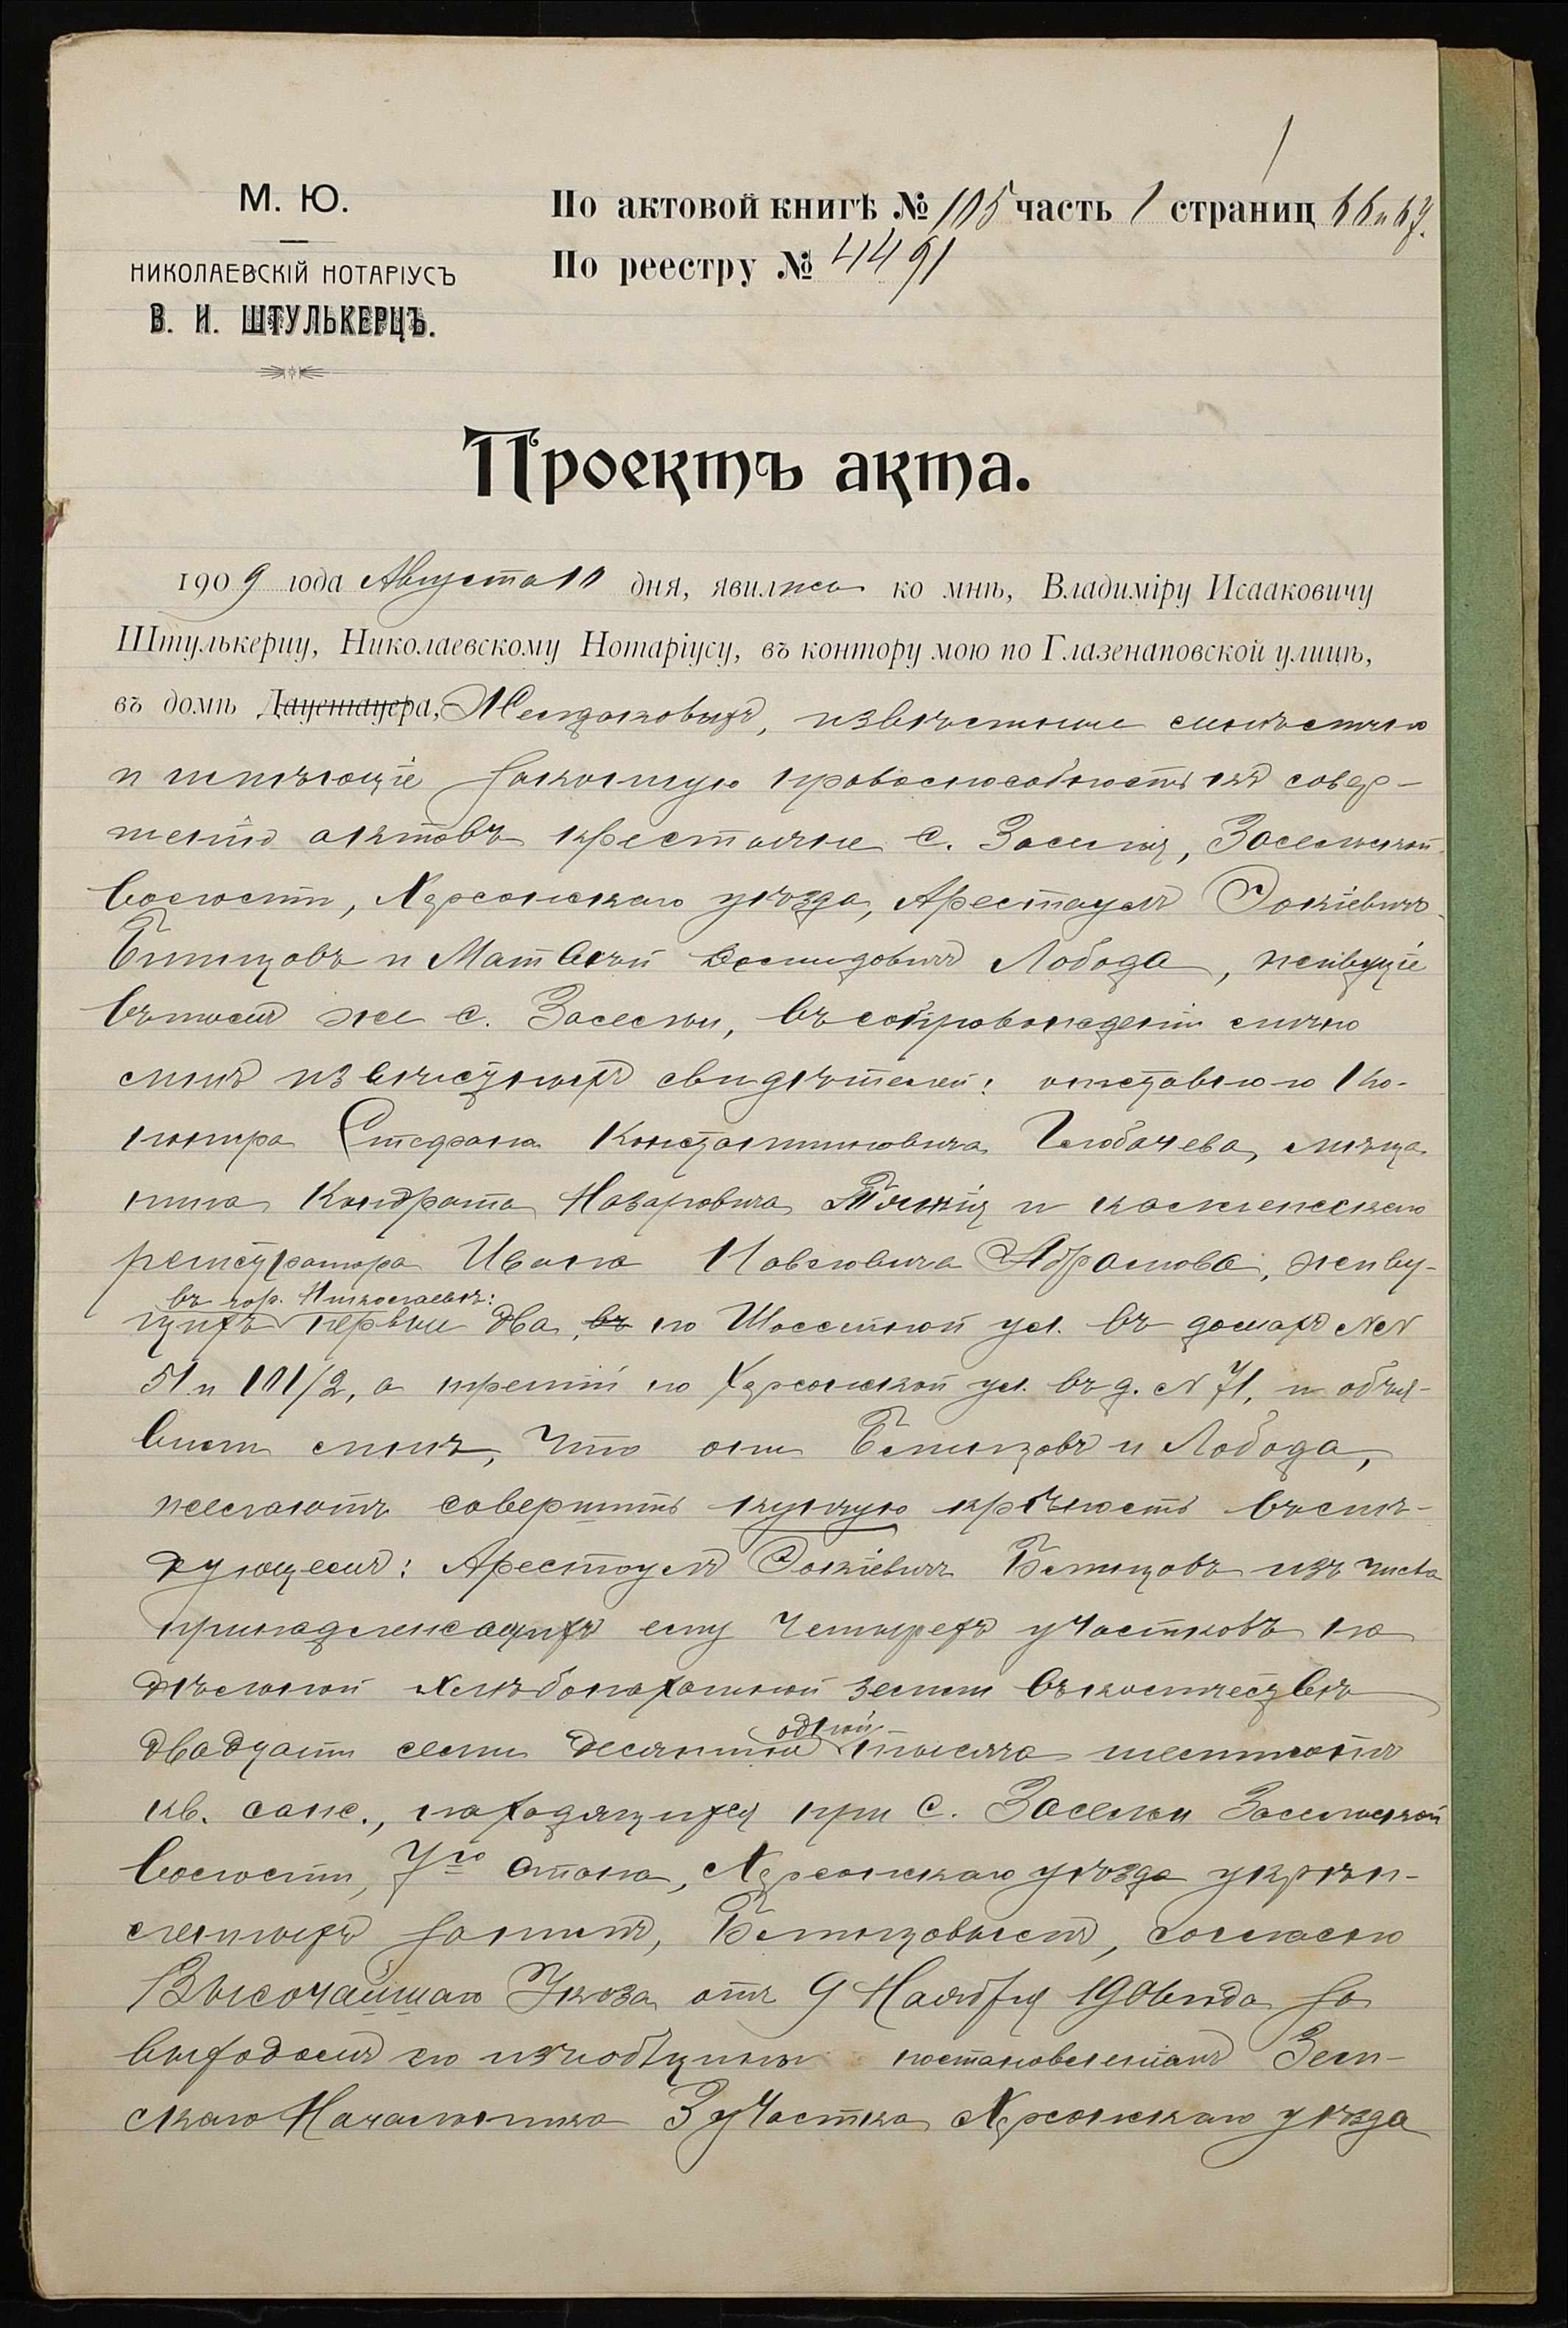 М. Ю.
НИКОЛАЕВСКІЙ НОТАРІУСЪ
В. И. ШТУЛЬКЕРЦЪ.
По актовой книгѣ № 105 часть 1 страниц 66 и 67.
По реестру № 4491
Проектъ акта.
1909 года Августа 10 дня, явились ко мнѣ, Владиміру Исааковичу
Штулькерцу, Николаевскому Нотаріусу, въ контору мою по Глазенаповской улицѣ,
въ домѣ Даустауера, извѣстные мнѣ лично
и имѣющіе законную правоспособность къ совер-
шенію актовъ крестьяне с. Заселья, Засельской
волости, Херсонскаго уѣзда, Арестаулъ
и Матвѣй Демидовичъ Лобода, живущіе
въ томъ же с. Засельи, въ сопровожденіи лично
мнѣ извѣстныхъ свидѣтелей: отставного
Стефана Константиновича Глобачева, мѣща-
нина Кондрата Назаровича и коллежскаго
регистратора Ивана Павловича Абрамова, живу-
въ гор. Николаевѣ:
щихъ первые два, въ по Шоссейной ул. въ домахъ №№
51 и 101/2, а третій по Херсонской ул. въ д. № 71, и объя-
вили мнѣ, что они и Лобода,
желаютъ совершить купчую крѣпость въ слѣ-
дующемъ: Арестаулъ изъ числа
принадлежащихъ ему четырехъ участковъ на
дѣльной хлѣбопахатной земли въ количествѣ
одной
двадцати семи десятинъ тысяча шестисотъ
кв. саж., находящихся при с. Засельи Засельской
волости, 7го стана, Херсонскаго уѣзда укрѣп-
ленныхъ за нимъ, согласно
Высочайшаго Указа отъ 9 Ноября 1906 года за
выходомъ его изъ общины постановленіемъ Зем-
скаго Начальника 3 участка Херсонскаго уѣзда